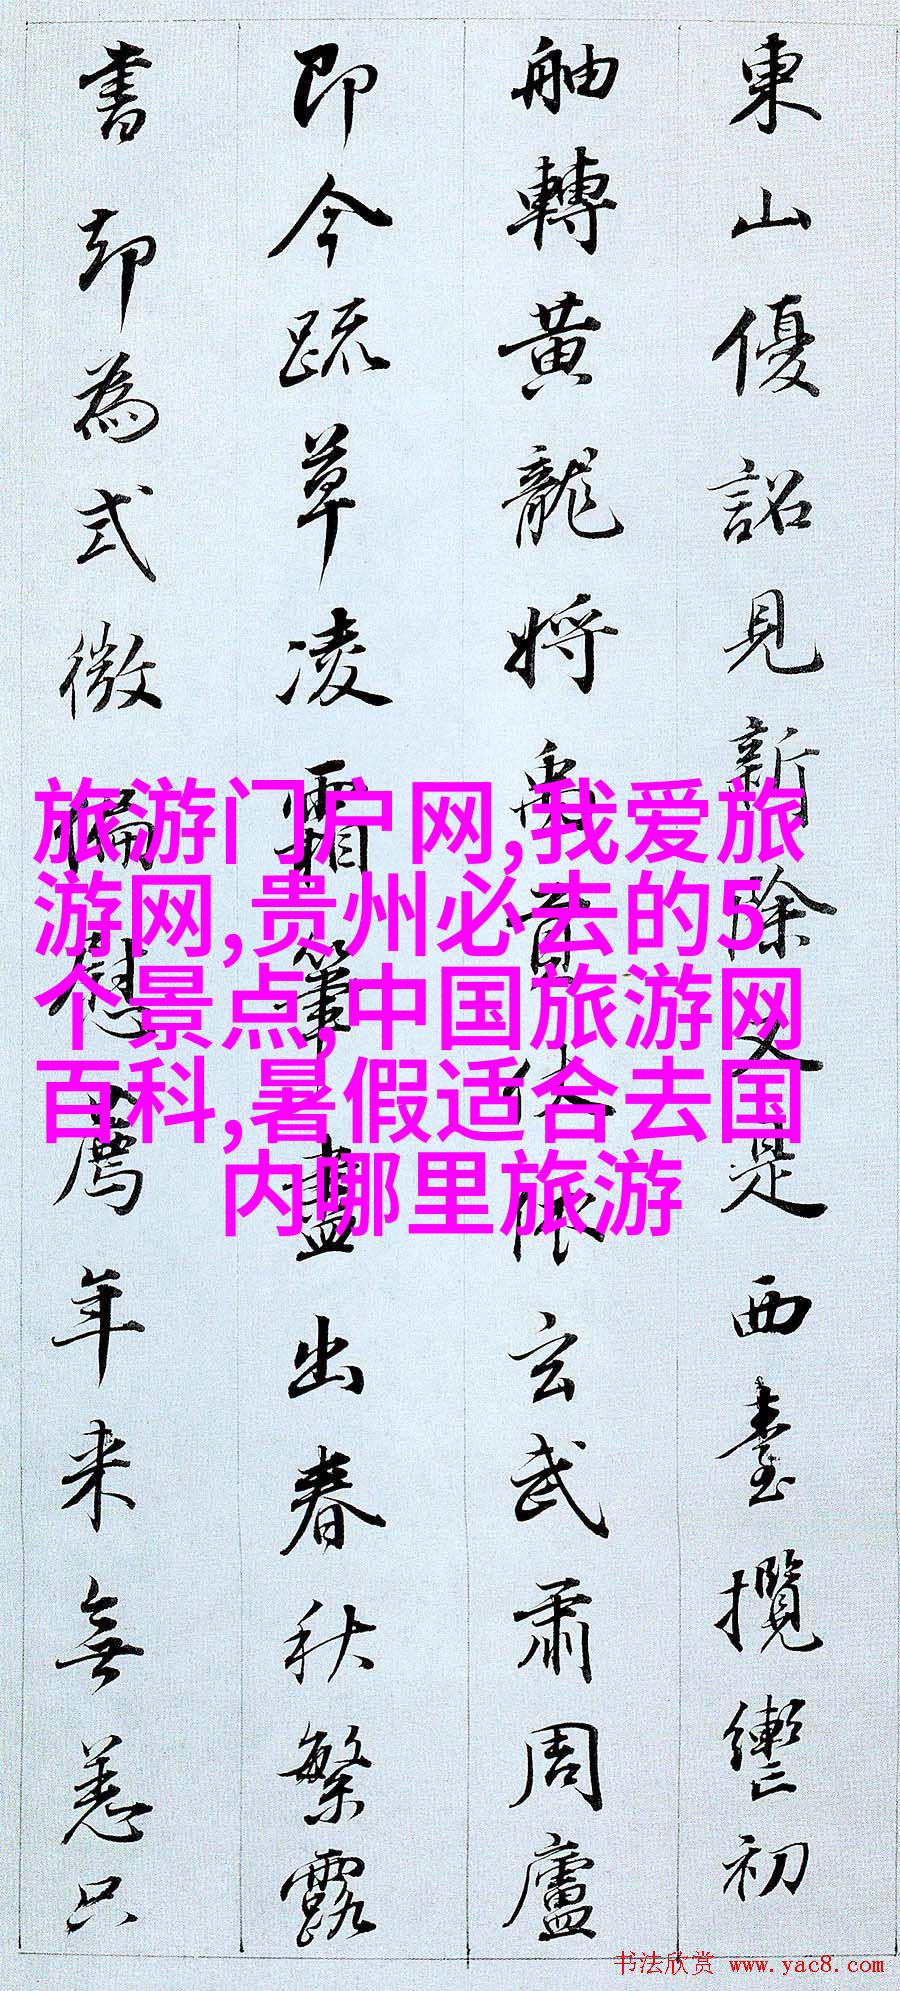 東山優詔見新除又是西臺攬轡初
舳轉黃龍將禹貢仗依玄武肅周廬
即今疏草凌霜筆盡出春秋繁露
書却為式微偏慰薦年来無恙只
旅游门户网,我爱旅
游网,贵州必去的5
个景点,中国旅游网
百科,暑假适合去国
内哪里旅游
书法欣赏 www.yac8.com